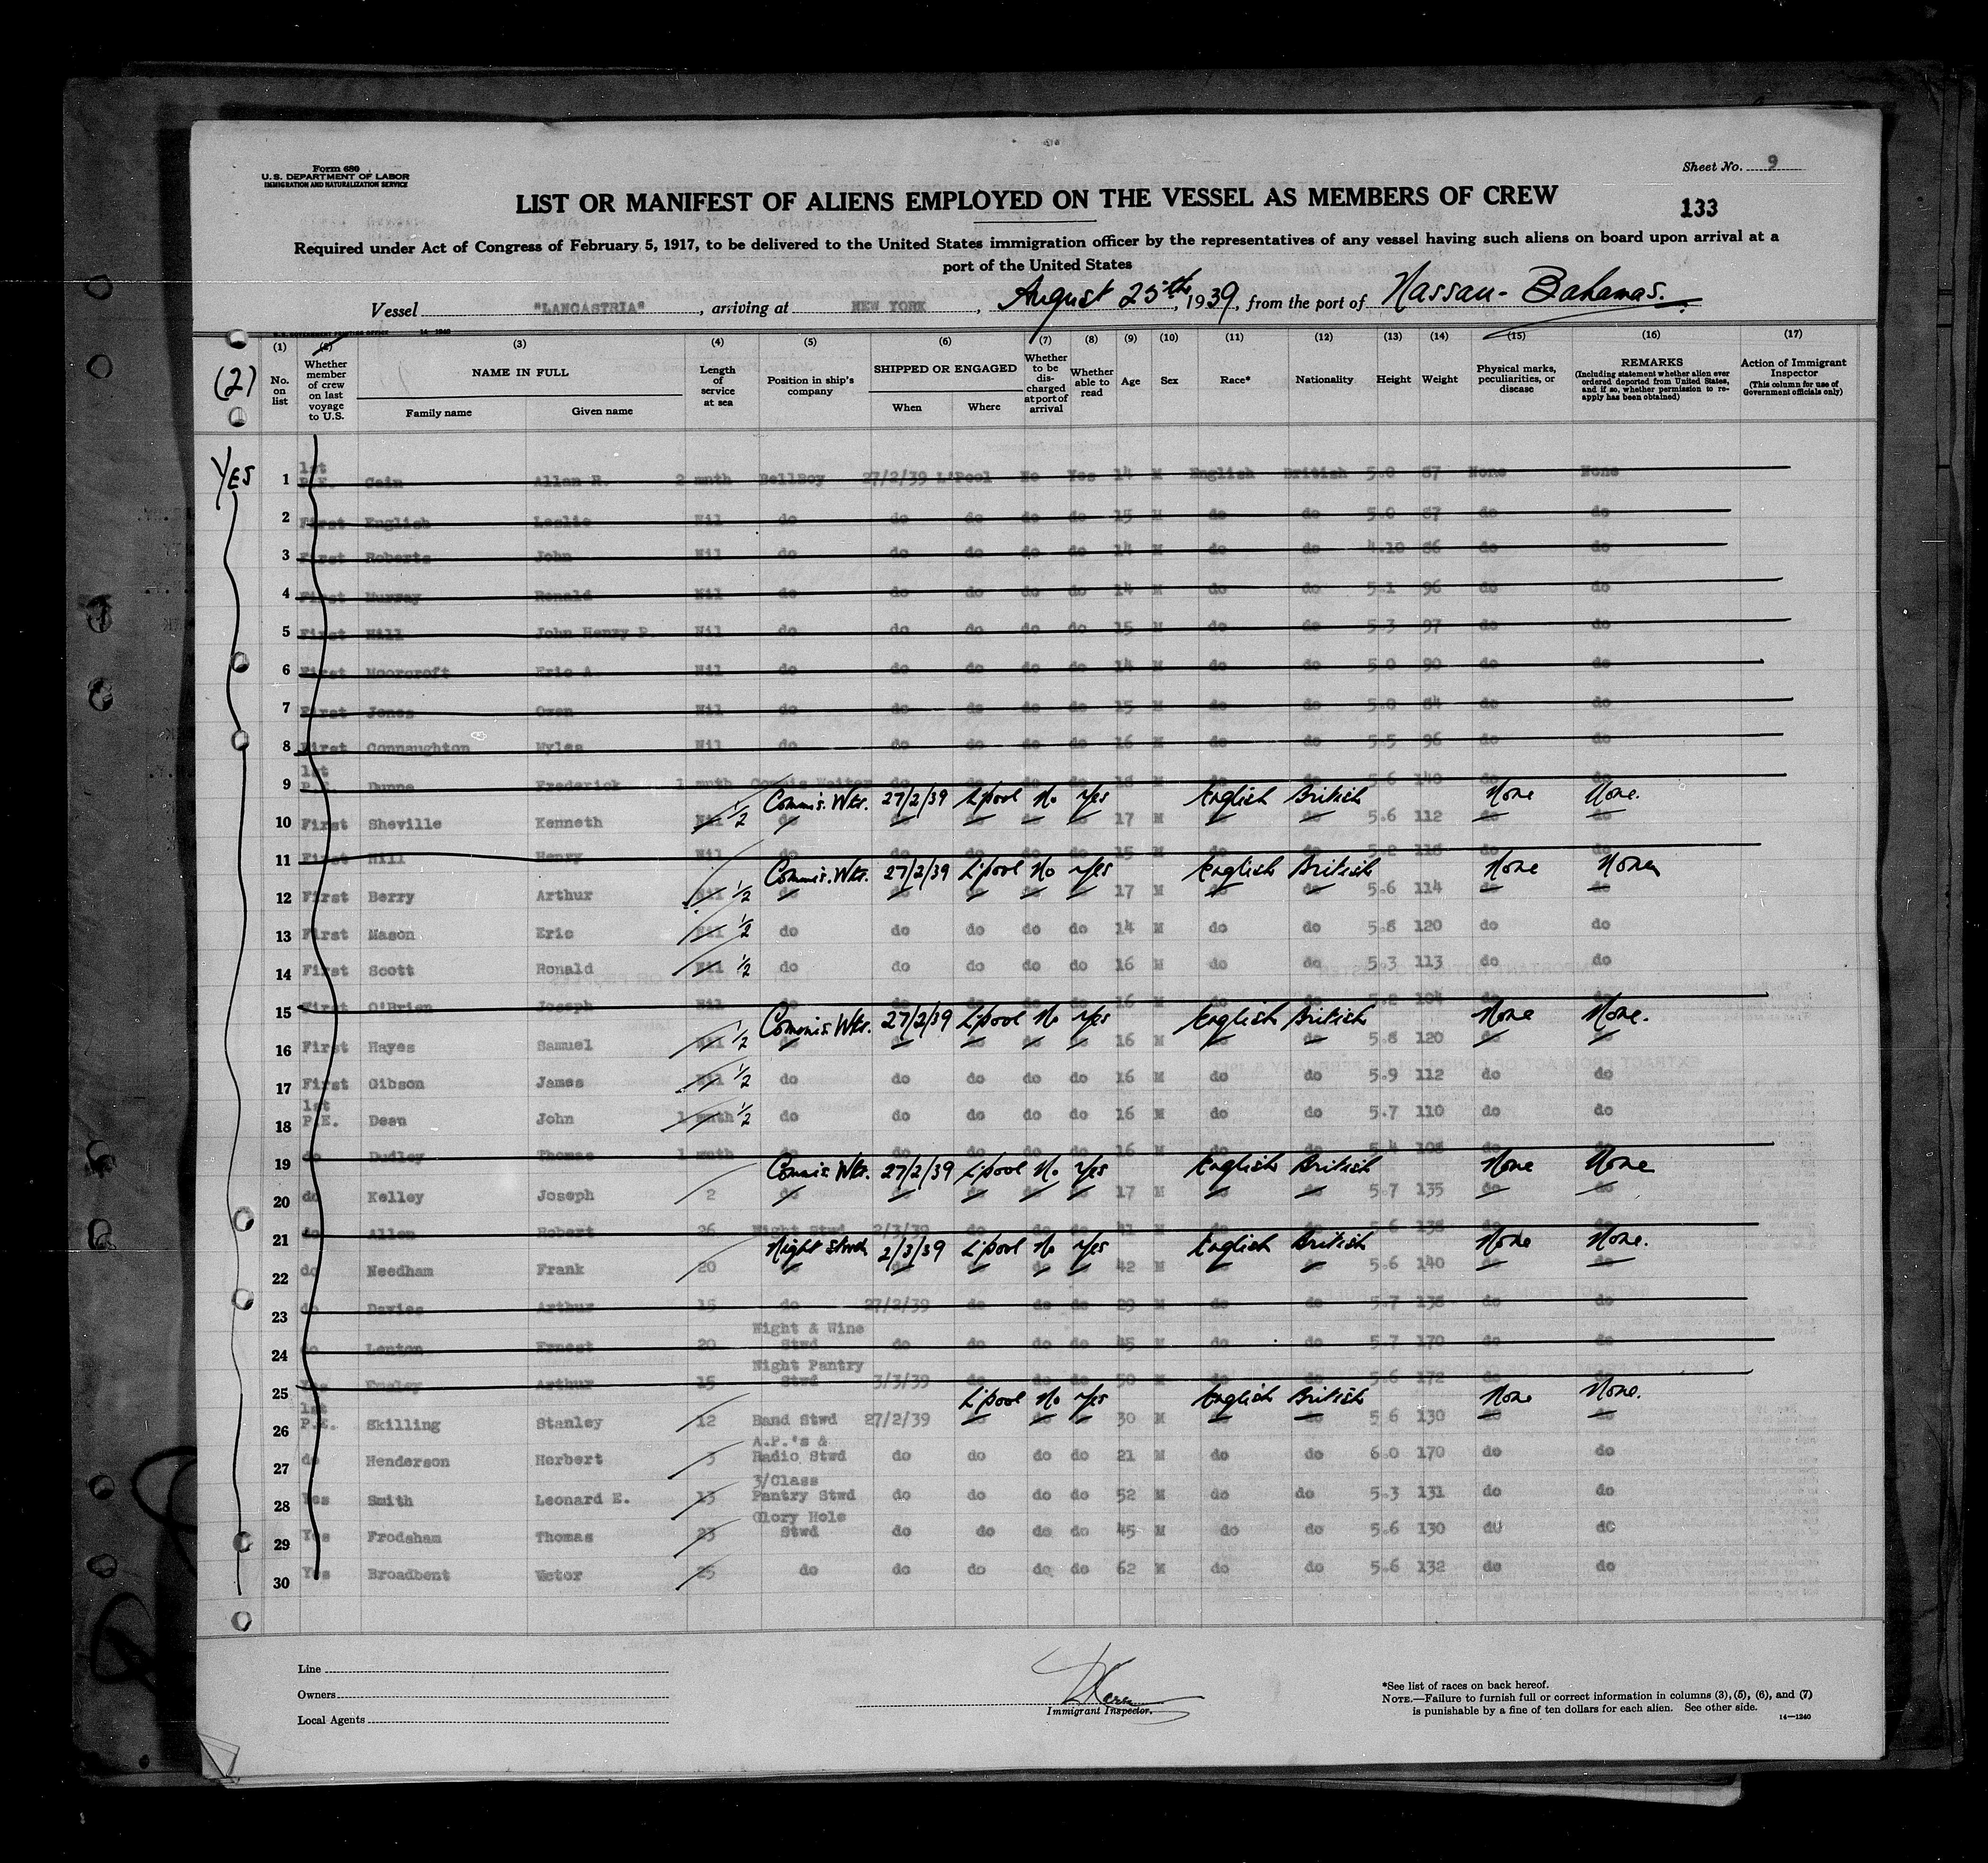 Form 680
U.S. DEPARTMENT OF LABOR
IMMIGRATION AND NATURALIZATION SERVICE
Sheet No. 9
LIST OR MANIFEST OF ALIENS EMPLOYED ON THE VESSEL AS MEMBERS OF CREW
133
Required under Act of Congress of February 5, 1917, to be delivered to the United States immigration officer by the representatives of any vessel having such aliens on board upon arrival at a
port of the United States
Vessel "LANCASTRIA", arriving at NEW YORK, August 25th, 1939, from the port of Nassau - Bahamas.
U.S. GOVERNMENT PRINTING OFFICE 14-1240
(1) (2) (3) (4) (5) (6) (7) (8) (9) (10) (11) (12) (13) (14) (15) (16) (17)
(2) No. on list Whether member of crew on last voyage to U.S. NAME IN FULL Family name Given name Length of service at sea Position in ship's company SHIPPED OR ENGAGED When Where Whether to be discharged at port of arrival Whether able to read Age Sex Race* Nationality Height Weight Physical marks, peculiarities, or disease REMARKS (Including statement whether alien ever ordered deported from United States, and if so, whether permission to re-apply has been obtained) Action of Immigrant Inspector (This column for use of Government officials only)
YES
1 1st P.E. Cain Allan R. 2 mnth BellBoy 27/2/39 L'Pool No Yes 14 M English British 5.0 87 None None
2 First English Leslie Nil do do do do do 15 M do do 5.0 87 do do
3 First Roberts John Nil do do do do do 14 M do do 4.10 86 do do
4 First Murray Ronald Nil do do do do do 14 M do do 5.1 96 do do
5 First Hill John Henry P. Nil do do do do do 15 M do do 5.3 97 do do
6 First Moorcroft Eric A. Nil do do do do do 14 M do do 5.0 90 do do
7 First Jones Owen Nil do do do do do 15 M do do 5.0 84 do do
8 First Connaughton Myles Nil do do do do do 16 M do do 5.5 96 do do
9 1st P.E. Dunne Frederick 1 mnth Commis Waiter do do do do 18 M do do 5.6 140 do do
Commis. Wtr. 27/2/39 L'pool No Yes English British None None.
10 First Sheville Kenneth Nil 1/2 do do do do do 17 M do do 5.6 112 do do
11 First Hill Henry Nil do do do do do 15 M do do 5.2 118 do do
Commis. Wtr. 27/2/39 L'pool No Yes English British None None
12 First Berry Arthur Nil 1/2 do do do do do 17 M do do 5.6 114 do do
13 First Mason Eric Nil 1/2 do do do do do 14 M do do 5.8 120 do do
14 First Scott Ronald Nil 1/2 do do do do do 16 M do do 5.3 113 do do
15 First O'Brien Joseph Nil do do do do do 16 M do do 5.2 104 do do
Commis Wtr. 27/2/39 L'pool No Yes English British None None.
16 First Hayes Samuel Nil 1/2 do do do do do 16 M do do 5.8 120 do do
17 First Gibson James Nil 1/2 do do do do do 16 M do do 5.9 112 do do
18 1st P.E. Dean John 1 mnth 1/2 do do do do do 16 M do do 5.7 110 do do
19 do Dudley Thomas 1 mnth do do do do do 16 M do do 5.4 108 do do
Commis Wtr. 27/2/39 L'pool No Yes English British None None
20 do Kelley Joseph 2 do do do do do 17 M do do 5.7 135 do do
21 do Allen Robert 26 Night Stwd 2/3/39 do do do 41 M do do 5.6 138 do do
Night Stwd 2/3/39 L'pool No Yes English British None None.
22 do Needham Frank 20 do do do do do 42 M do do 5.6 140 do do
23 do Davies Arthur 15 do 27/2/39 do do do 29 M do do 5.7 138 do do
24 do Lenton Ernest 20 Night & Wine Stwd do do do do 45 M do do 5.7 170 do do
25 Yes Emsley Arthur 15 Night Pantry Stwd 3/3/39 do do do 50 M do do 5.6 172 do do
L'pool No Yes English British None None.
26 1st P.E. Skilling Stanley 12 Band Stwd 27/2/39 do do do 30 M do do 5 6 130 do do
27 do Henderson Herbert 3 A.P.'s & Radio Stwd do do do do 21 M do do 6.0 170 do do
28 Yes Smith Leonard E. 13 3/Class Pantry Stwd do do do do 52 M do do 5.3 131 do do
29 Yes Frodsham Thomas 23 Glory Hole Stwd do do do do 45 M do do 5.6 130 do do
30 Yes Broadbent Victor 25 do do do do do 62 M do do 5.6 132 do do
Line
Owners
Local Agents
Immigrant Inspector.
*See list of races on back hereof.
NOTE.—Failure to furnish full or correct information in columns (3), (5), (6), and (7)
is punishable by a fine of ten dollars for each alien. See other side.
14—1240